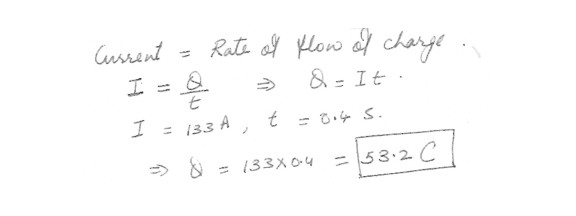 Current = Rate of flow of charge.
I = Q/t ⇒ Q = It.
I = 133 A, t = 0.4 s.
⇒ Q = 133×0.4 = 53.2 C